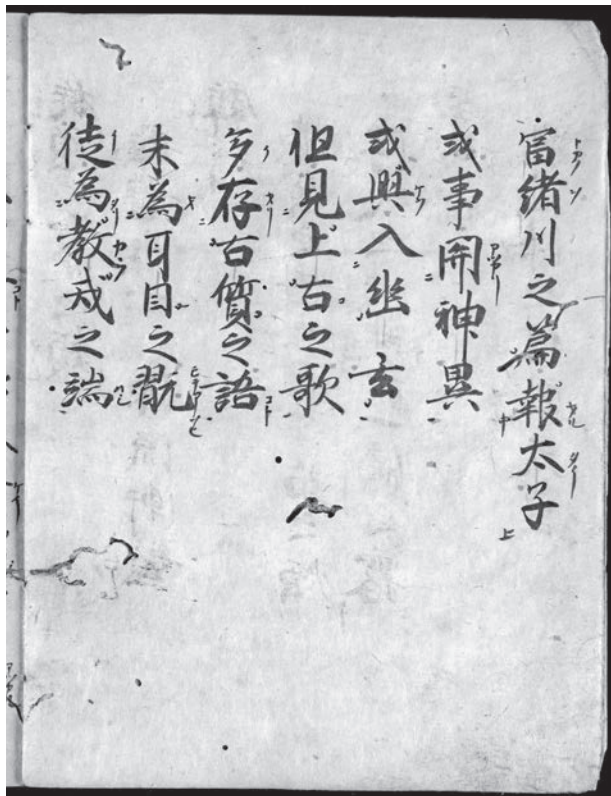 富緒川之篇報太子
或事開神異
或興入幽玄
但見上古之歌
多存古質之語
未為耳目之翫
徒為教戒之端